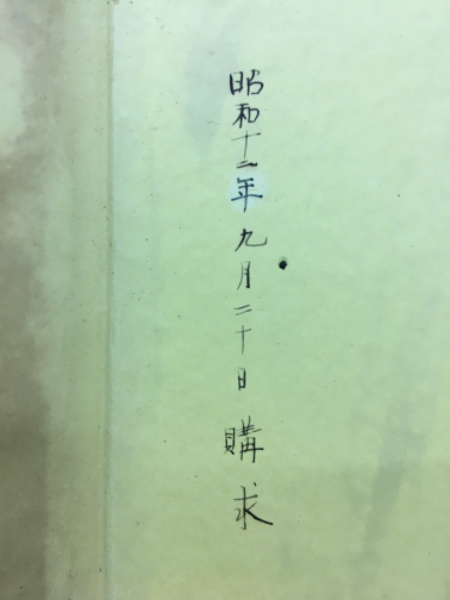 昭和十二年九月二十日購求